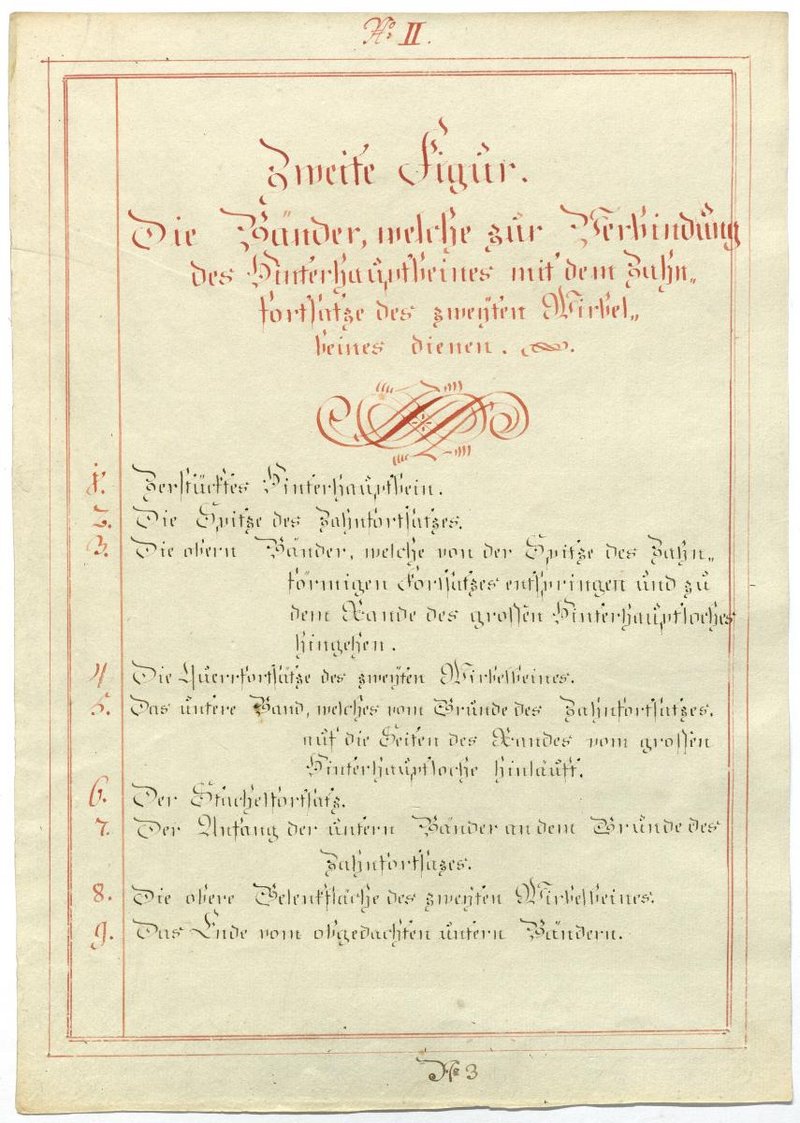 No II.
Zweite Figur.
Die Bänder, welche zur Verbindung
des Hinterhauptbeines mit dem Zahn„
fortsatze des zweÿten Wirbel„
beines dienen.
1. Zerstücktes Hinterhauptbein.
2. Die Spitze des Zahnfortsatzes.
3. Die obern Bänder, welche von der Spitze des Zahn„
förmigen Fortsatzes entspringen und zu
dem Rande des grossen Hinterhauptloches
hingehen.
4 Die Querrfortsätze des zweÿten Wirbelbeines.
5. Das untere Band, welches vom Grunde des Zahnfortsatzes.
auf die Seiten des Randes vom grossen
Hinterhauptloche hinläuft.
6. Der Stachelfortsatz.
7. Der Anfang der untern Bänder an dem Grunde des
Zahnfortsazes.
8. Die obere Gelenkfläche des zweÿten Wirbelbeines.
9. Das Ende vom obgedachten untern Bändern.
No 3